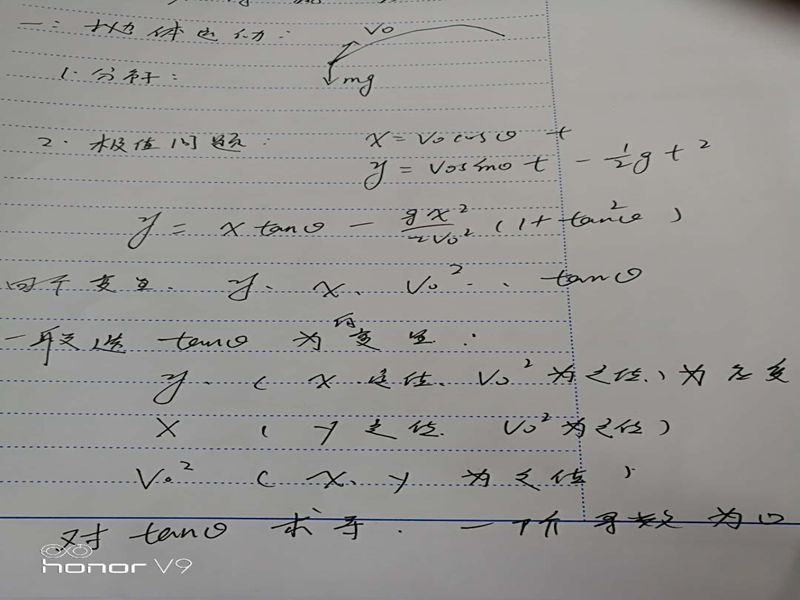 一: 抛体运动:
V0
mg
1. 分解:
2. 极值问题:
x = V0 cosθ t
y = V0 sinθ t - 1/2 g t²
y = x tanθ - gx²/2V0² (1 + tan²θ)
四个变量. y. x. V0². tanθ
一般选 tanθ 为自变量:
y. ( x 定值. V0² 为定值) 为应变
x ( y 定值. V0² 为定值)
V0² ( x. y 为定值)
对 tanθ 求导. 一阶导数为 0
honor V9